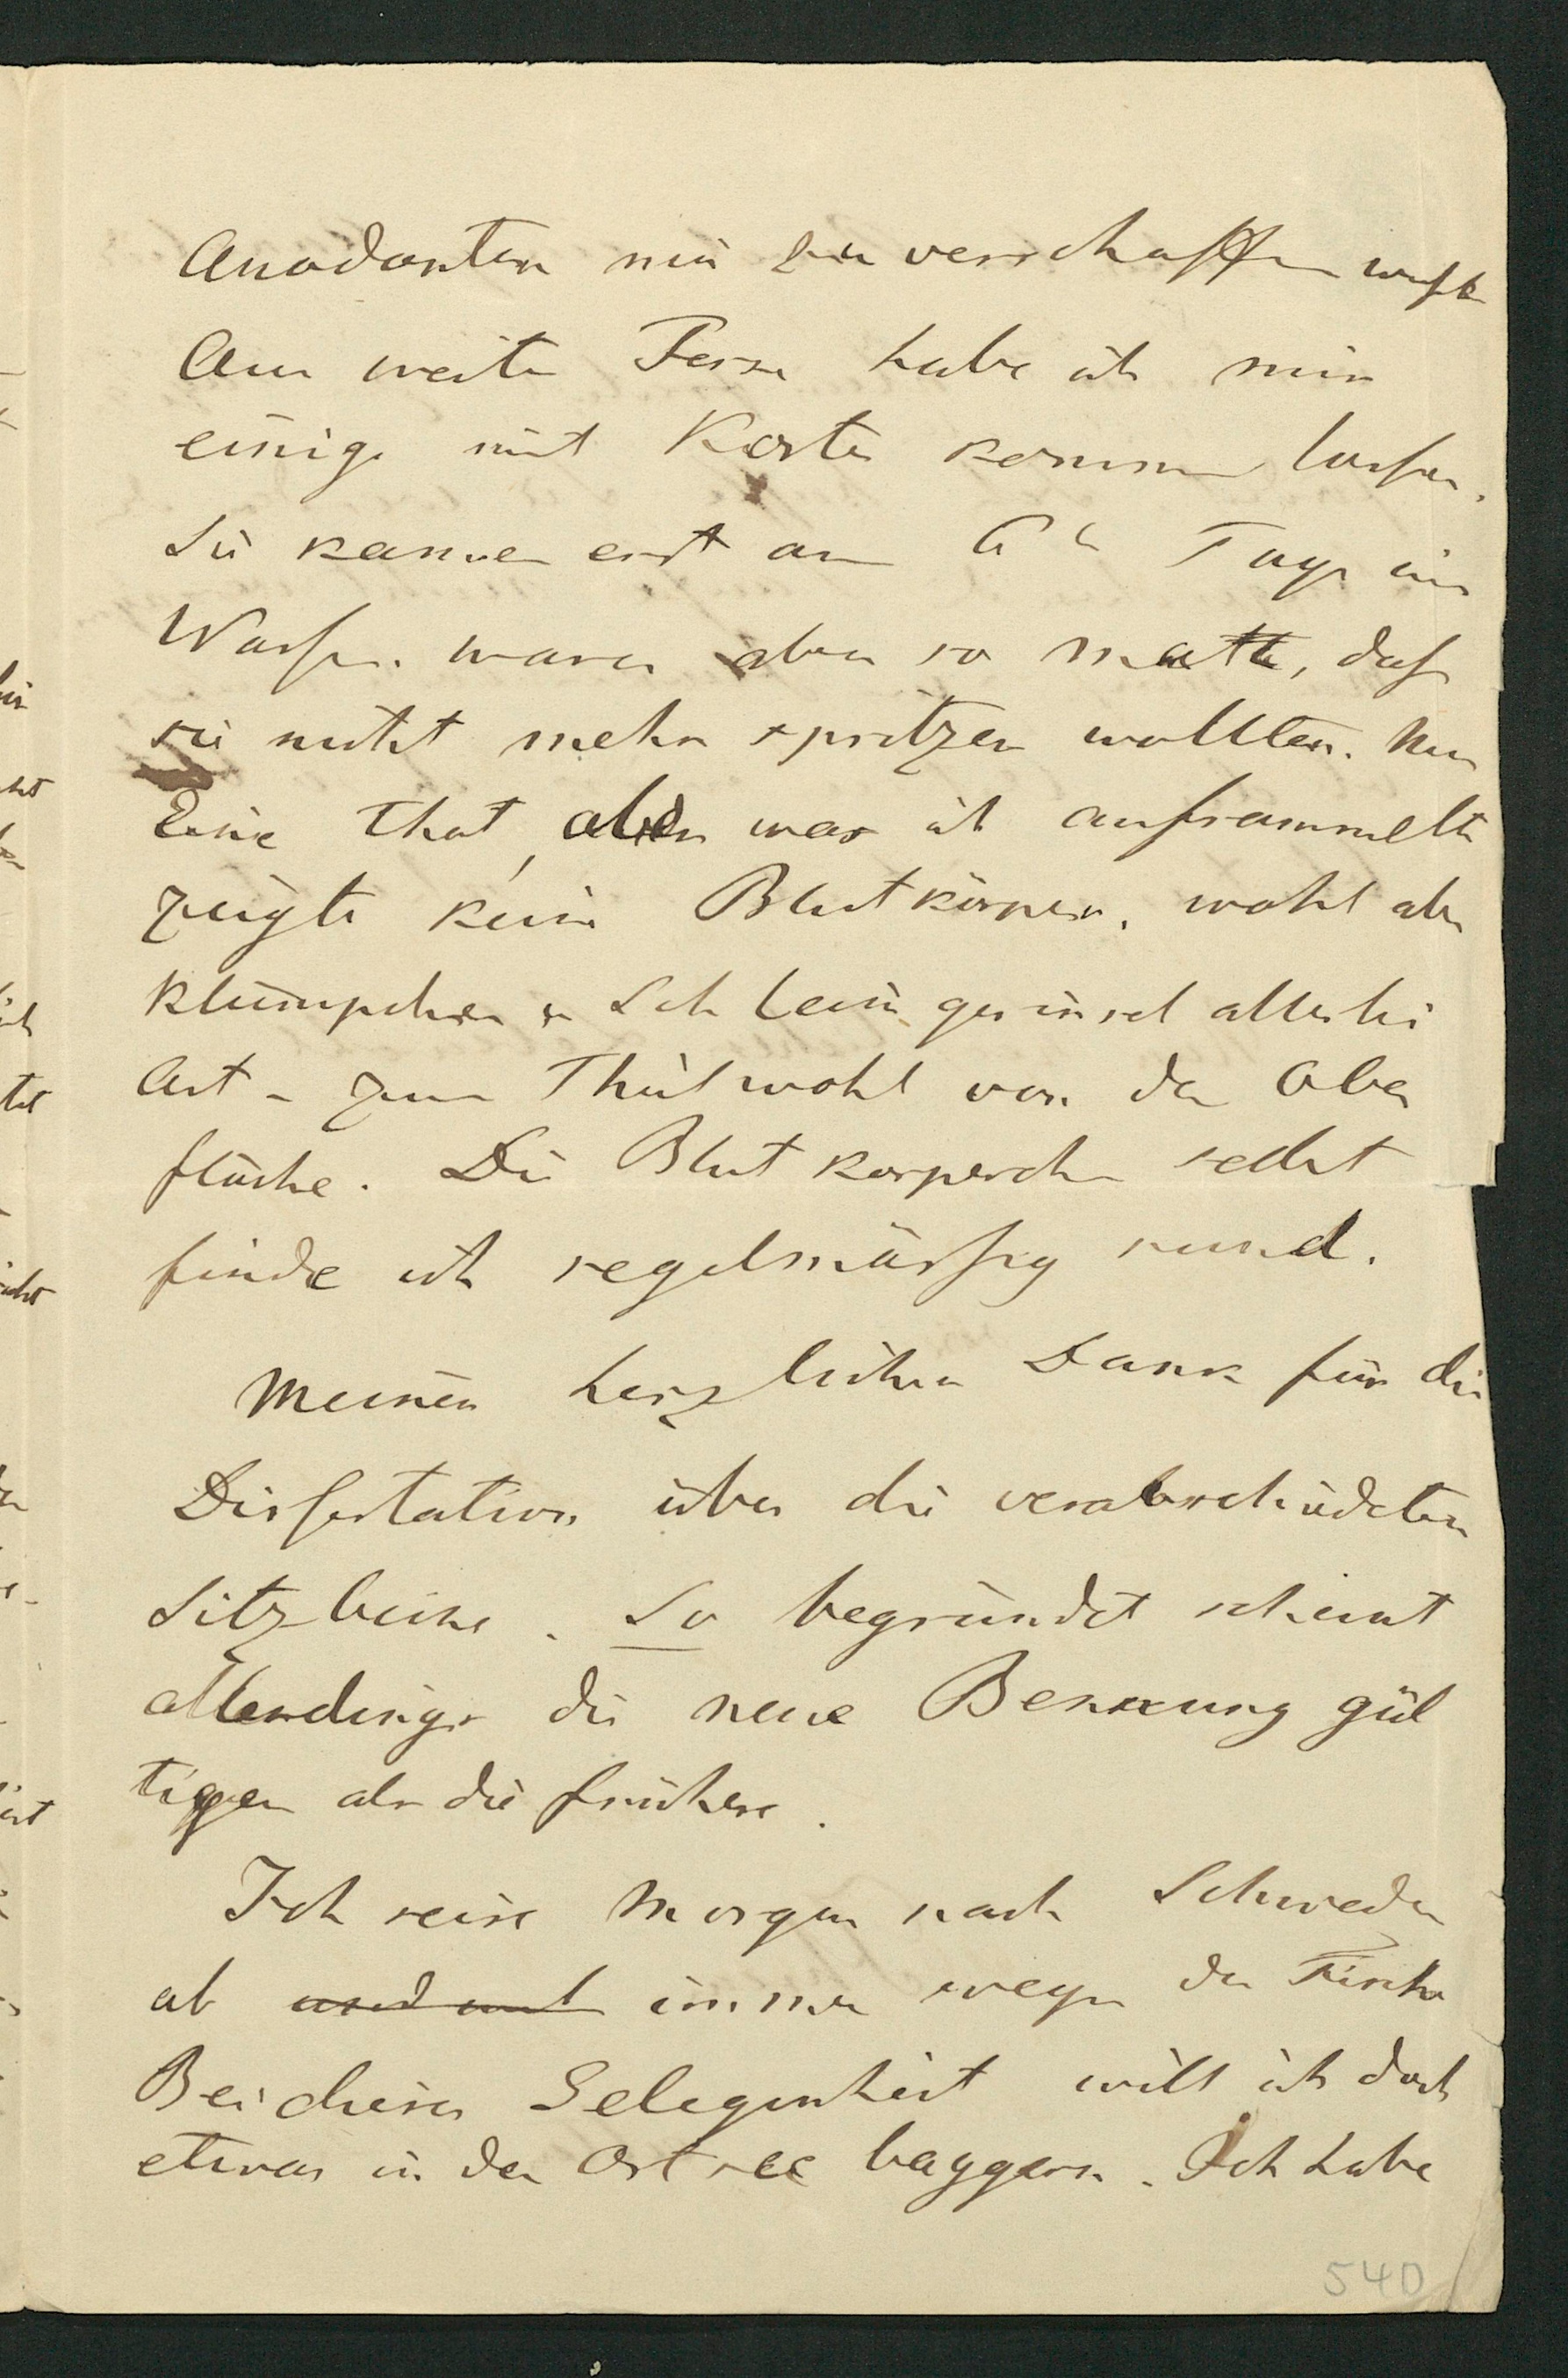 Anodonten mir zu verschaffen wußte
Aus weiter Ferne habe ich mir
einige mit Kosten kommen lassen.
Sie kamen erst am 6t Tage ins
Wasser. waren aber so matt, daß
sie nicht mehr spritzen wollten. Nur
Eine that, aber was ich aufsammelte
zeigte keine Blutkörper, wohl aber
Klümpchen u Schleimgerinsel allerlei
Art – zum Theil wohl von der Ober
fläche. Die Blutkörperchen selbst
finde ich regelmässig rund.
Meinen herzlichen Dank für die
Dissertation über die verabschiedeten
Sitzbeine. So begründet scheint
allerdings die neue Benennung gül
tiger als die frühere.
Ich reise Morgen nach Schweden
ab immer wegen der Fische
Bei dieser Gelegenheit will ich doch
etwas in der Ostsee baggern. Ich habe
540